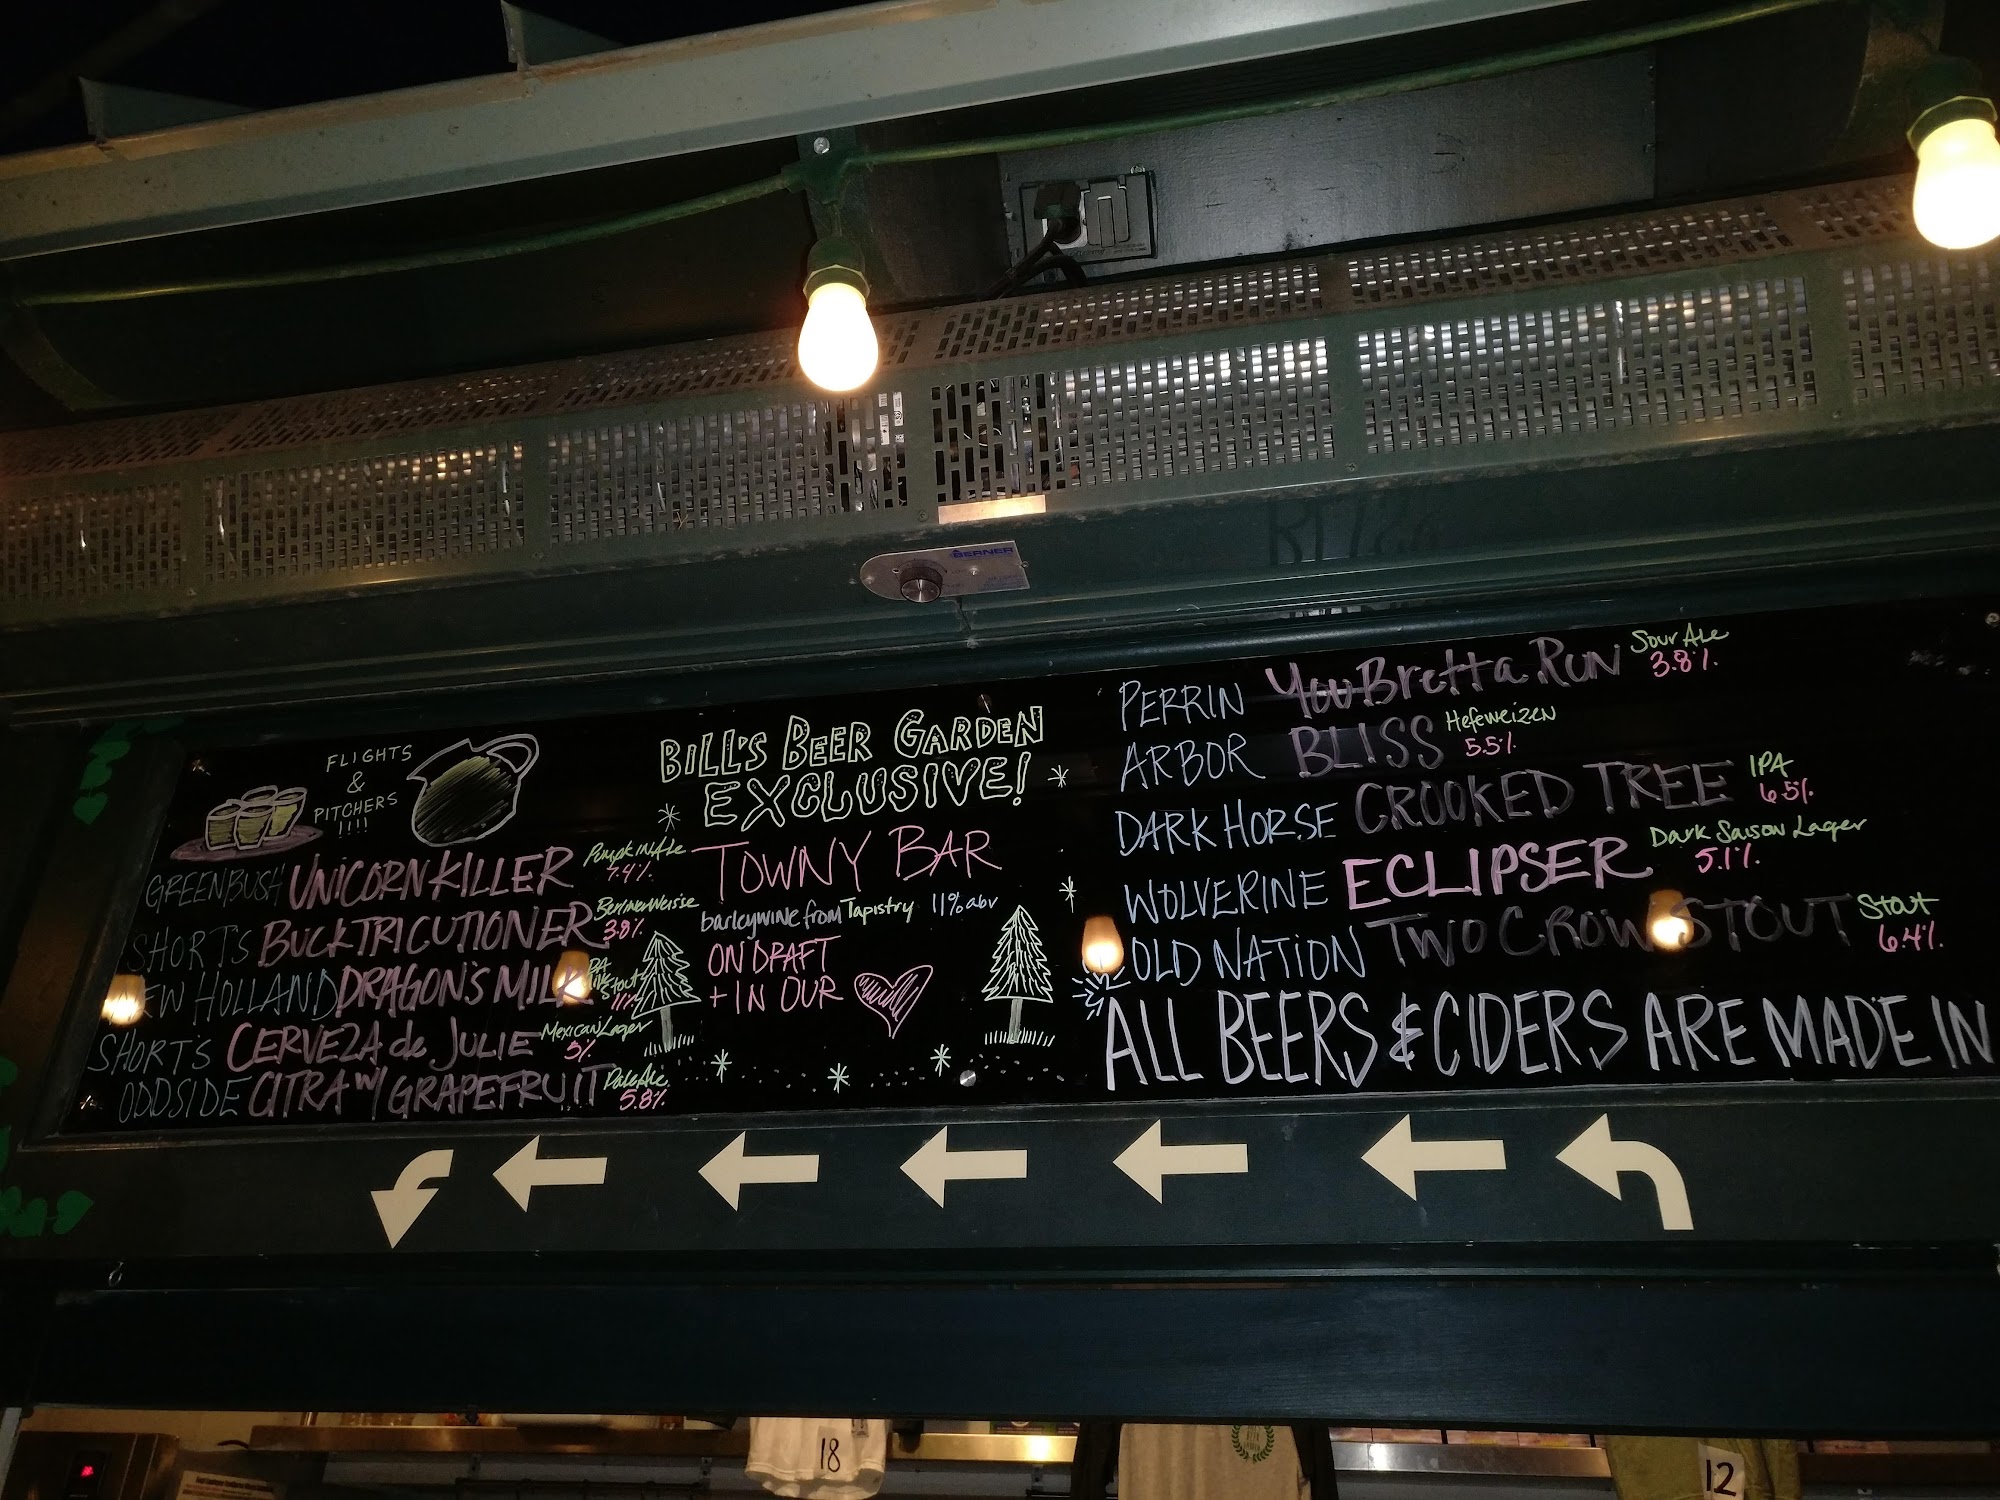 BERNER
FLIGHTS
&
PITCHERS
!!!!
GREENBUSH UNICORN KILLER Pumpkin Ale 7.4%
SHORT'S BUCKTRICUTIONER Berliner Weisse 3.8%
NEW HOLLAND DRAGON'S MILK Stout 11%
SHORT'S CERVEZA de JULIE Mexican Lager 5%
ODDSIDE CITRA w/ GRAPEFRUIT Pale Ale 5.8%
BILL'S BEER GARDEN
EXCLUSIVE!
TOWNY BAR
barleywine from Tapistry 11% abv
ON DRAFT
+ IN OUR
PERRIN You Bretta Run Sour Ale 3.8%
ARBOR BLISS Hefeweizen 5.5%
DARK HORSE CROOKED TREE IPA 6.5%
WOLVERINE ECLIPSER Dark Saison Lager 5.1%
OLD NATION TWO CROW STOUT Stout 6.4%
ALL BEERS & CIDERS ARE MADE IN
18
12